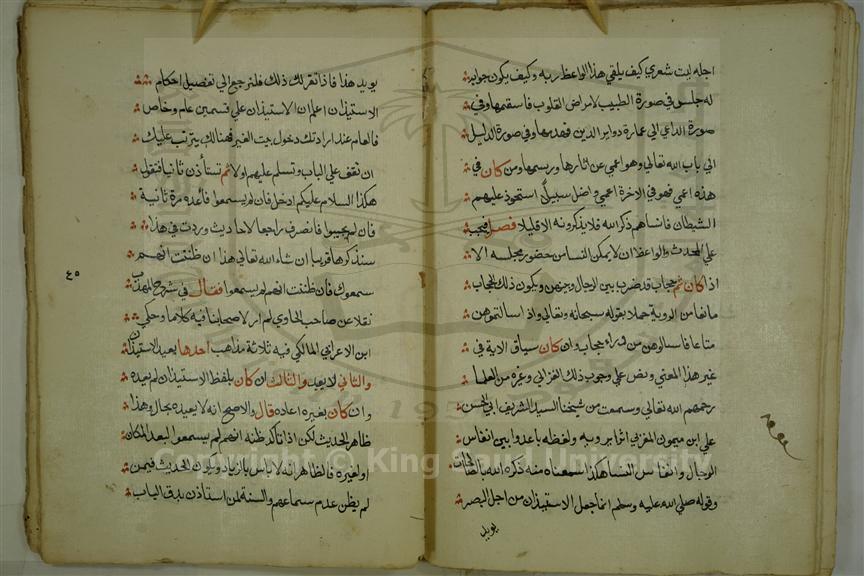 اجله ليت شعري كيف يلقي هذا الواعظ ربه وكيف يكون جوابه
له جلس في صورة الطبيب لامراض القلوب فاسقمها وفي
صورة الداعي الي عمارة دواير الدين فهدمها وفي صورة الدليل
الي باب الله تعالي وهو اعمي عن اثارها ورسمها ومن كان في
هذه اعمي فهو في الاخرة اعمي واضل سبيلا استحوذ عليهم
الشيطان فانساهم ذكر الله فلا يذكرونه الا قليلا فصل فيجب
علي المحدث والواعظ ان لا يمكن النسا من حضور مجلسه الا
اذا كان ثم حجاب قد ضرب بين الرجال وبينهن ويكون ذلك الحجاب
مانعا من الروية حملا بقوله سبحانه وتعالي واذا سالتموهن
متاعا فاسالوهن من وراء حجاب وان كان سياق الاية في
غير هذا المعني ونص علي وجوب ذلك الغزالي وغيره من العلما
رحمهم الله تعالي وسمعت من شيخنا السيد الشريف ابي الحسن
علي ابن ميمون المغربي اثنا يرويه ولفظه باعدوا بين انفاس
الرجال وانفاس النسا هكذا اسمعناه منه ذكره الله بالصالحات
وقوله صلي الله عليه وسلم انما جعل الاستيذان من اجل البصر
يويد
يويد هذا فاذا تقرر لك ذلك فلنرجع الي تفصيل احكام
الاستيذان اعلم ان الاستيذان علي قسمين عام وخاص
فالعام عند ارادتك دخول بيت الغير فهنالك يترتب عليك
ان تقف علي الباب وتسلم عليهم اولا ثم تستأذن ثانيا فتقول
هكذا السلام عليكم ادخل فان لم يسمعوا فأعده مرة ثانية
فان لم يجيبوا فانصرف راجعا لاحاديث وردت في هذا
سنذكرها قريبا ان شاء الله تعالي هذا ان ظننت انهم
سمعوك فان ظننت انهم لم يسمعوا فقال في شرح المهذب
نقلا عن صاحب الحاوي لم ار لاصحابنا فيه كلاما وحكي
ابن الاعرابي المالكي فيه ثلاثة مذاهب احدها يعيد الاستيذان
والثاني لا يعيد والثالث ان كان بلفظ الاستيذان لم يعيده
وان كان بغيره اعاده قال والاصح انه لا يعيده بحال وهذا
ظاهر الحديث لكن اذا تأكد ظنه انهم لم يسمعوا لبعد المكان
او لغيره فالظاهر انه لا باس بالزياد ويكون الحديث فيمن
لم يظن عدم سماعهم والسنة لمن استاذن بدق الباب
٤٥